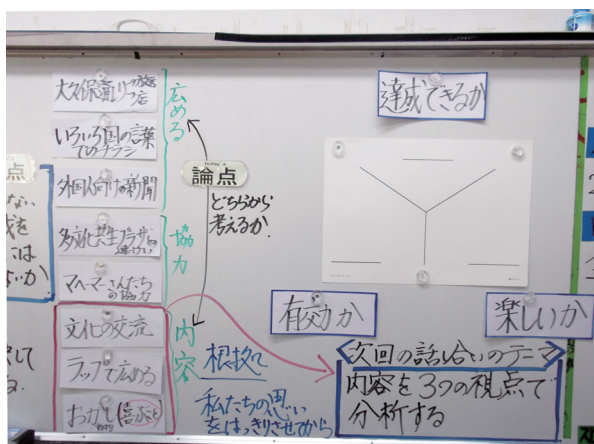 点
ない
を
には
ないか
して
る
大久保通り
店
いろいろ国の言葉
でのチラシ
外国人向けの新聞
多文化共生プラザ
マヘーマーさんたち
の協力
文化の交流
ラップで広める
おかし(喜ぶ)
広める
協力
内容
論点
どちらから
考えるか.
根拠に
私たちの思い
をはっきりさせてから
達成できるか
有効か
楽しいか
<次回の話し合いのテーマ>
内容を3つの視点で
分析する